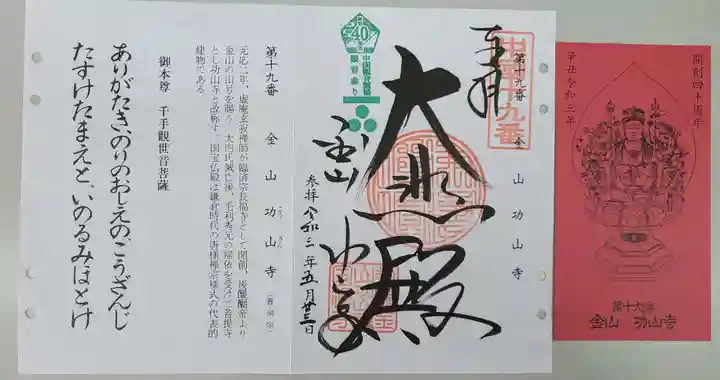 開創四十周年
辛丑令和三年
第十九番
金山 功山寺
奉拝
中国十九番
第十九番 金山功山寺
大悲殿
金山
功山寺
参拝 令和三年五月廿三日
40
中国観音霊場
観音参り
第十九番 金山功山寺
こう ざん
(曹洞宗)
元応二年、虚庵玄寂禅師が臨済宗長福寺として開創、後醍醐帝より
金山の山号を賜う。大内氏滅亡後、毛利秀元の帰依を受けて菩提寺
とし功山寺と改称す。国宝仏殿は鎌倉時代の唐様禅宗様式の代表的
建物である。
御本尊 千手観世音菩薩
ありがたき、のりのおしえのこうざんじ
たすけたまえと、いのるみほとけ